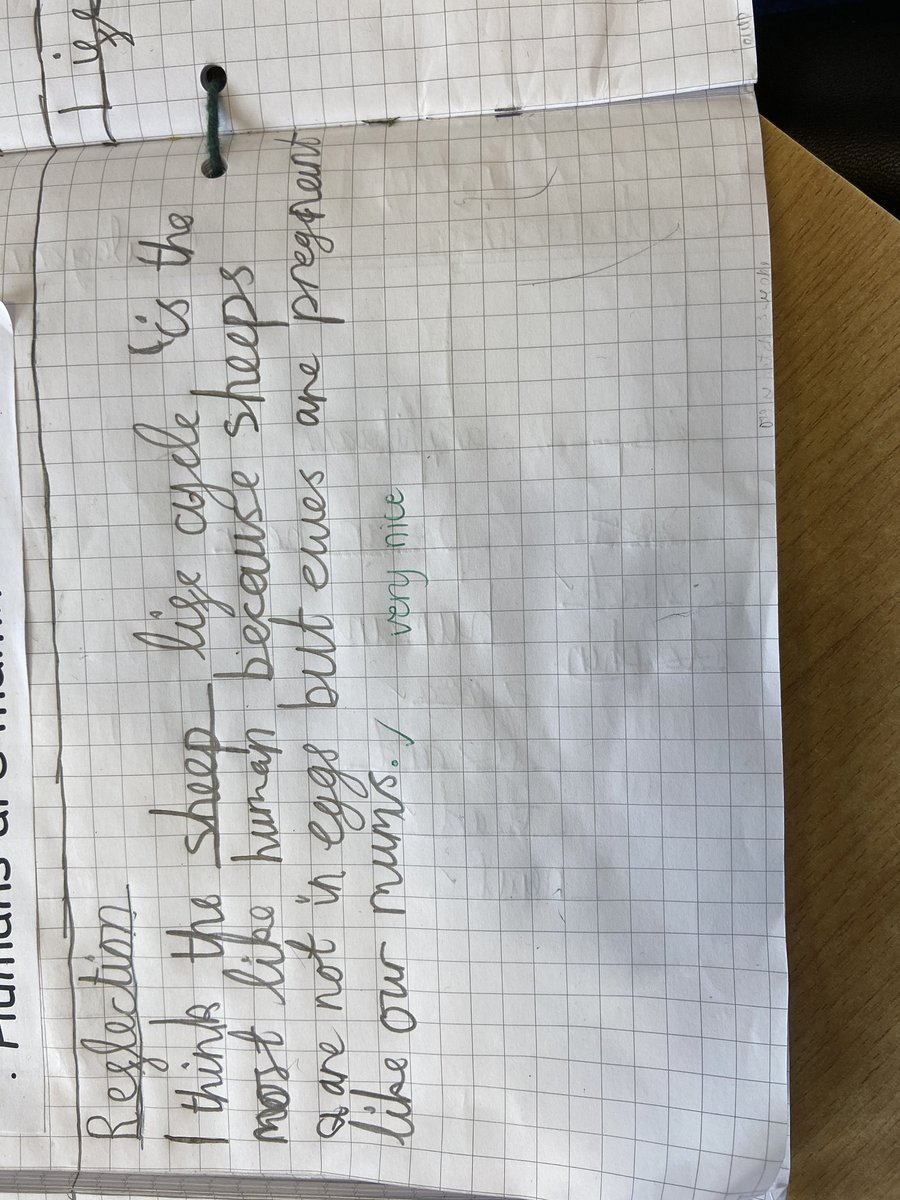 Reflection
I think the sheep life cycle is the
most like human because sheeps
are not in eggs but ewes are pregnant
like our mums. ✓ very nice